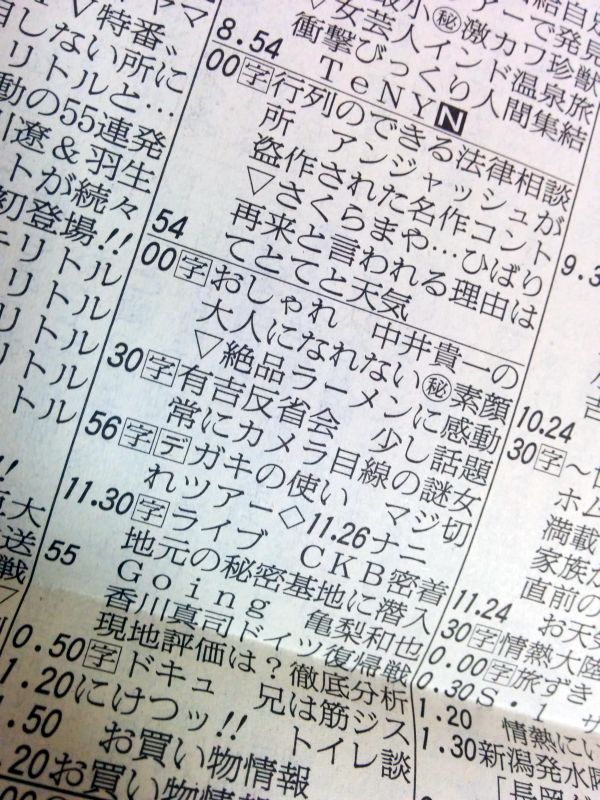 小㊙激カワ珍獣
▽女芸人インド温泉旅
衝撃びっくり人間集結
8.54 TeNY N
00字行列のできる法律相談
所 アンジャッシュが
盗作された名作コント
▽さくらまや…ひばり
再来と言われる理由は
54 てとてと天気
00字おしゃれ 中井貴一の
大人になれない㊙素顔
▽絶品ラーメンに感動
30字有吉反省会 少し話題
常にカメラ目線の謎女
56字デガキの使い マジ切
れツアー◇11.26ナニ
11.30字ライブ CKB密着
地元の秘密基地に潜入
55 Going 亀梨和也
香川真司ドイツ復帰戦
現地評価は?徹底分析
0.50字ドキュ 兄は筋ジス
1.20にけつッ!! トイレ談
.50 お買い物情報
.20お買い物情報
00字
ヤマ
▽特番
しない所に
リトルと…
動の55連発
遼&羽生
トが続々
初登場!!
リトル
リトル
リトル
リトル
トル
!!
大
送
戦
▽
アーで発見
9.3
10.24
30字~
ホム
満載
家族
直前の
11.24 お天気
30字情熱大陸
0.00字旅ずき
0.30S・1
1.20 情熱にい
1.30新潟発水
「長岡